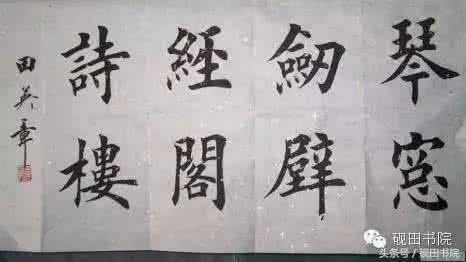 琴窓
劔壁
經閣
詩樓
田英章
砚田书院
头条号 / 砚田书院